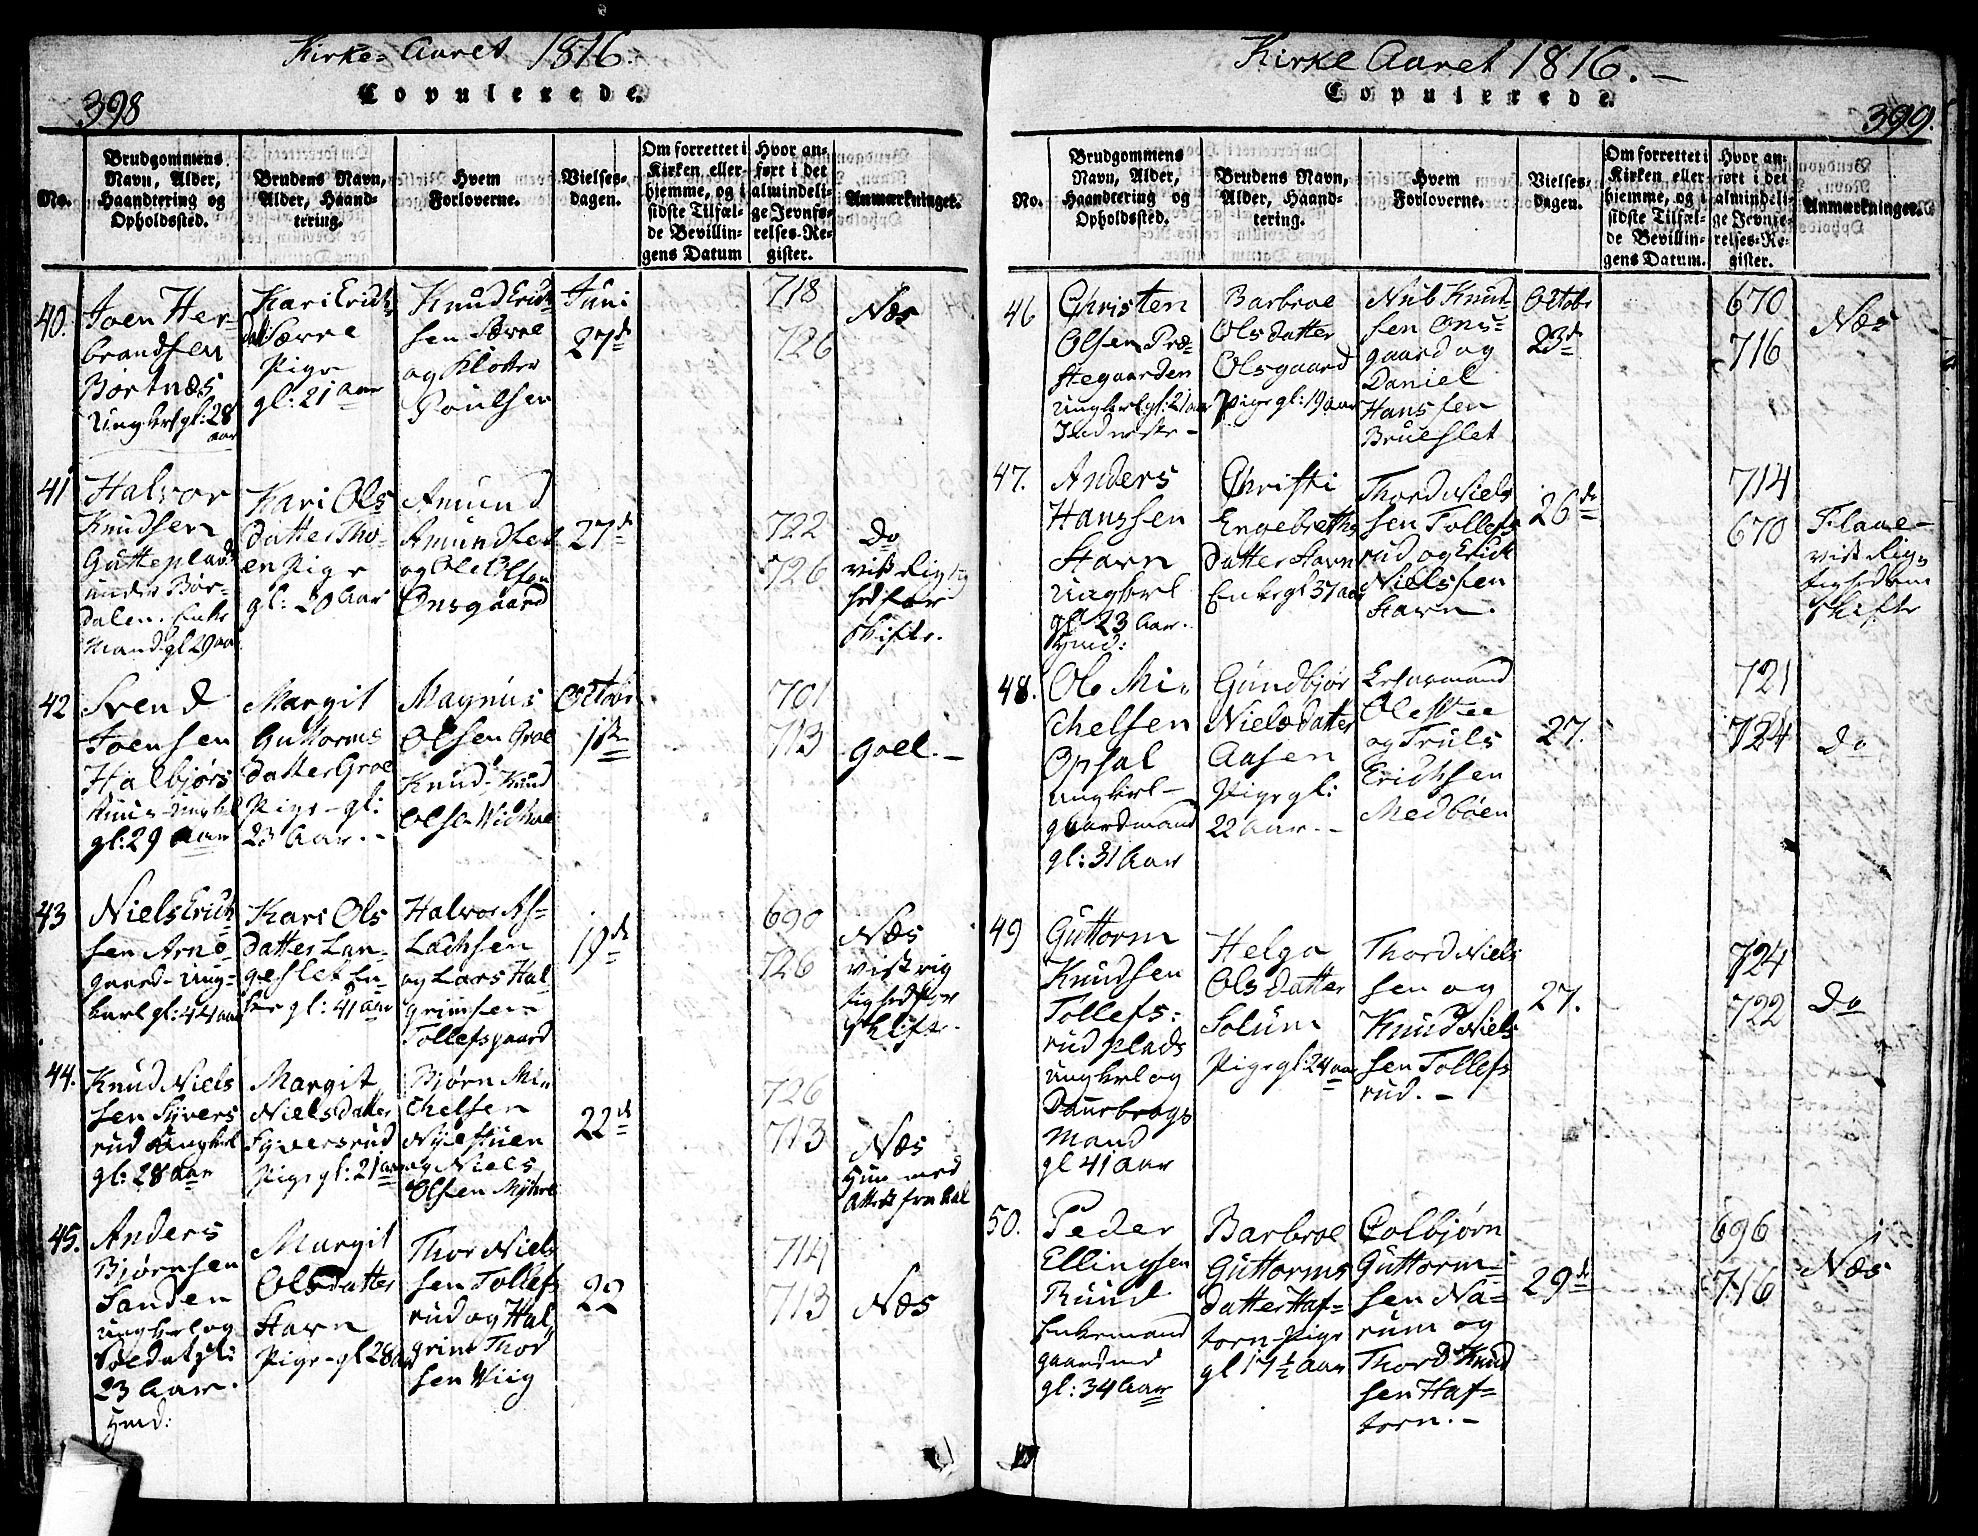 Kirke-Aaret 1816.
Copulerede.
398
No.
Brudgommens
Navn, Alder,
Haandtering og
Opholdssted.
Brudens Navn,
Alder, Haand-
tering.
Hvem
Forloverne.
Vielses-
dagen.
Om forrettet i
Kirken eller
hjemme, og i
sidste Tilfæl-
de Bevillin-
gens Datum
Hvor an-
ført i det
almindeli-
ge Jevnfø-
relses-Re-
gister.
Anmærkninger.
40.
Joen Her-
brandsen
Børtnæs
Ungkrl gl: 28
aar
Kari Erichs
Særre
Pige
gl: 21 aar
Knud Erich-
sen Særre
og Kløtter
Poulsen
Juni
27de
718
726
Næs
41
Halvor
Knudsen
Gutteplads
under Bør-
dalen. Enke
Mand gl 29 aar
Kari Ols
datter Tho-
en Pige
gl: 20 Aar
Amund
Amundsen
og Ole Olsen
Onsgaard
27de
722
726
Do
vist Rigtig
hed for
Skifte.
42
Svend
Joensen
Halbjørs
Ungkrl
gl: 29 Aar
Margit
Guttorms
datter Groe
Pige - gl:
23 Aar. -
Magnus
Olsen Groe
Knud Knud
Olsen
Octobr
701
713
Goel. -
43
Niels Erich
sen Arne-
gaard - Ung-
karl gl: 44 aar
Kari Ols
datter Lan-
geslet En-
ke gl: 41 aar
Halvor As-
lachsen
og Lars Hal-
grimsen
Tollefsgaard
19de
690
726
Næs
vist rig
tighed for
Skifte.
44.
Knud Niels
sen Syvers
rud Ungkrl
gl: 28 Aar
Margit
Nielsdatter
Syversrud
Pige gl: 21 aar
Bjørn Mi-
chelsen
Nyestuen
og Niels
Olsen
22de
726
713
Næs
Hun med
Attest fra Aal
45.
Anders
Bjørnsen
Sanden
Ungkrl og
Soldat gl:
23 Aar.
Hmd:
Margit
Olsdatter
Stavn
Pige - gl 28 aar
Thor Niels
sen Tollefs
rud og Hal
grim Thor
sen Wiig
22
714
713
Næs
Kirke Aaret 1816. -
Copulerede.
399.
No.
Brudgommens
Navn, Alder,
Haandtering og
Opholdssted.
Brudens Navn,
Alder, Haand-
tering.
Hvem
Forloverne.
Vielses-
dagen.
Om forrettet i
Kirken eller
hjemme, og i
sidste Tilfæl-
de Bevillin-
gens Datum.
Hvor an-
ført i det
almindeli-
ge Jevnfø-
relses-Re-
gister.
Anmærkninger.
46
Christen
Olsen Præ-
stegaarden
Ungkrl gl: 21 aar
Barbroe
Olsdatter
Olsgaard
Pige gl: 19 aar
Nub Knud
sen Ons-
gaard og
Daniel
Hanssen
Brueslet
Octobr
23de
670
716
Næs
47.
Anders
Hanssen
Stavn
Ungkrl
gl 23 Aar.
Hmd:
Christi
Engebreths
datter Stavn
Enke gl 37 aar
Thord Niels
sen Tollefs
rud og Erick
Nielssen
Stavn.
26de
714
670
Flaae-
vist Rig-
tighed om
Skifte
48.
Ole Mi-
chelsen
Opsal
Ungkrl -
gaardmand
gl: 31 Aar
Gundbjør
Nielsdatter
Aasen
Pige gl:
22 Aar. -
Lensmand
Ole Wee
og Truls
Erichsen
Medbøen
27.
721
724
Do
49
Guttorm
Knudsen
Tollefs-
rud plads
Ungkrl og
Dannebrogs
Mand
gl 41 Aar
Helga
Olsdatter
Solum
Pige gl: 24 aar
Thord Niels
sen og
Knud Niel-
sen Tollefs
rud. -
27.
724
722
Do
50.
Peder
Ellingsen
Ruud
Enkemand
gaardmd
gl: 34 Aar
Barbroe
Guttorms
datter Haf-
torn Pige
gl 17 ½ Aar
Colbjørn
Guttorm-
sen Na-
rum og
Thord Knud
sen Haf-
torn. -
29de
696
716
Næs